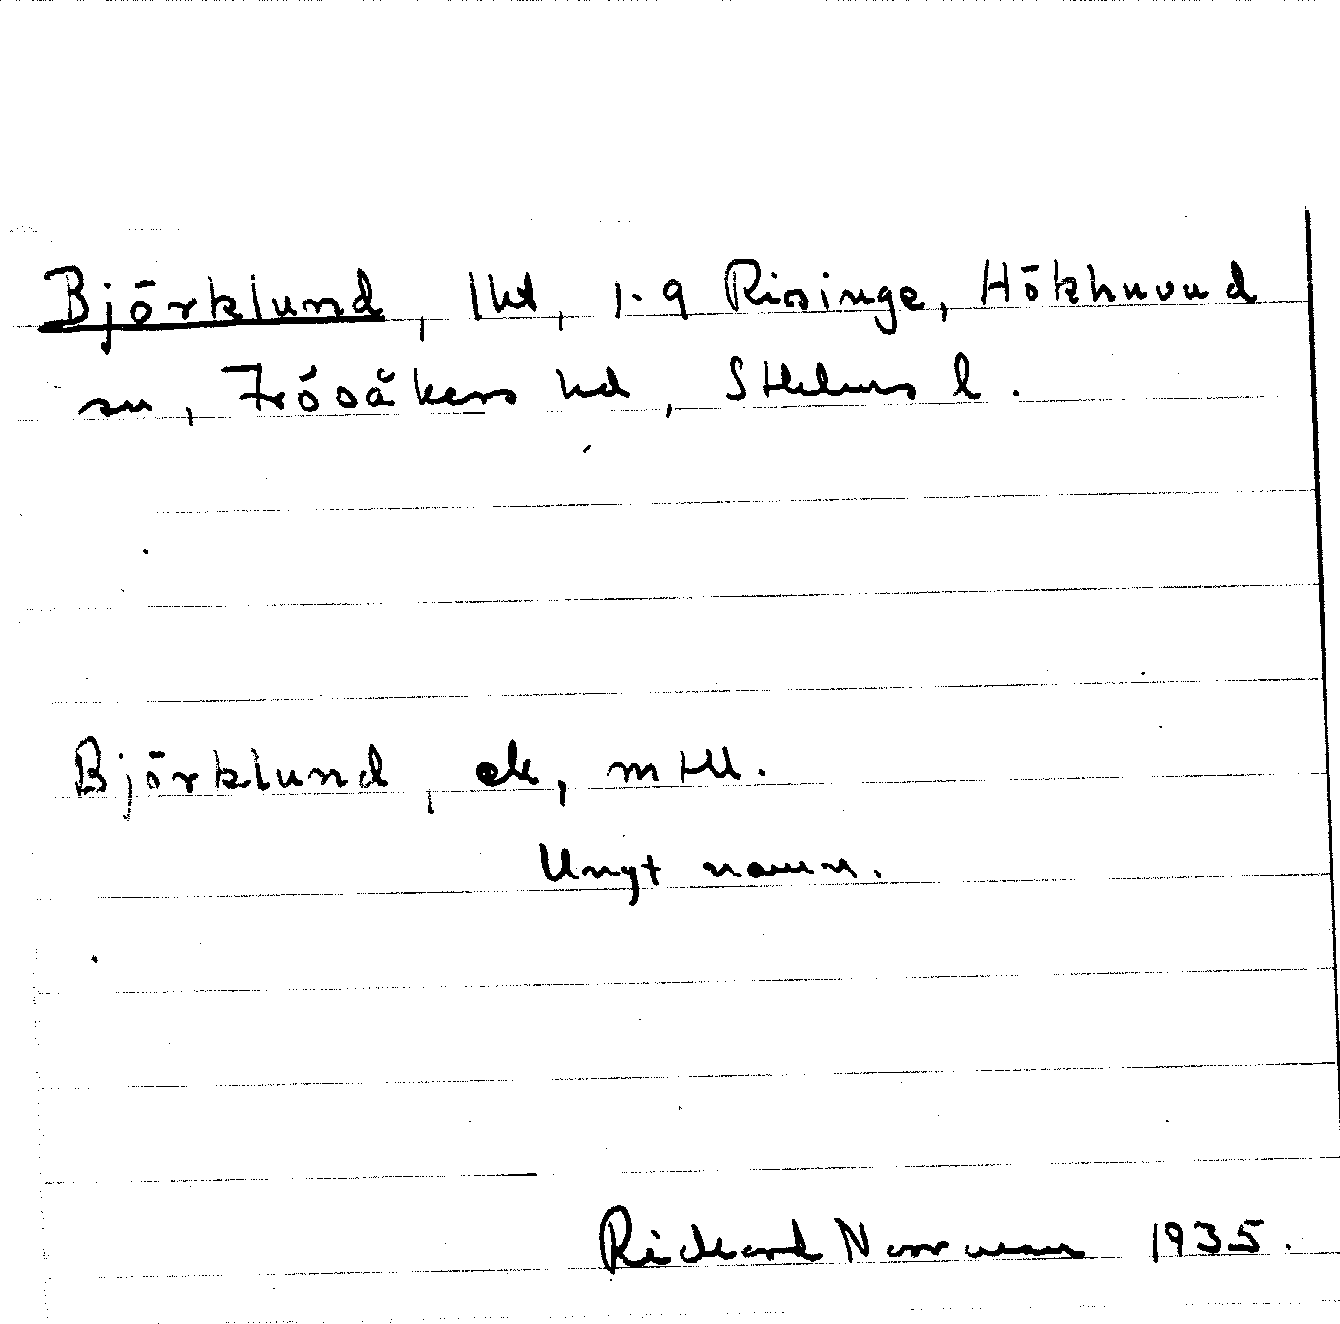 Björklund, lht, 1.9 Risinge, Hökhuvud
sn, Frösåkers hd, Sthlms l.
Björklund, ek, mtll.
Ungt namn.
Rickard Norrman 1935.